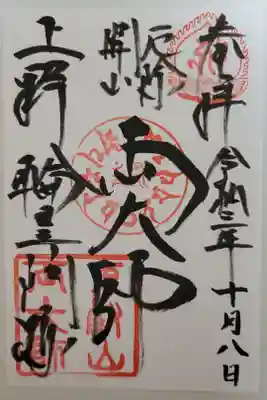 奉拝
令和二年十月八日
開山
両大師
上野
輪王寺門跡